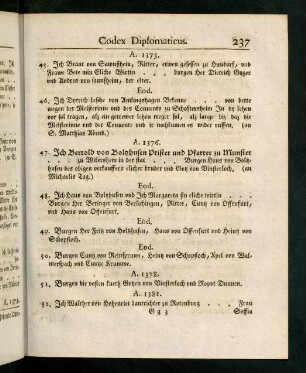 Codex Diplomaticus. 237
A. 1373.
45. Ich Braun von Sawnßheim, Ritter, etwen geseßen zu Hundorf, vnd
Frawe Bete min Eliche Wirtin . . . burgen Her Dietrich Güger
und Andres von sawnßheim, der elter.
Eod.
46. Ich Dytrich losch von Amlingßhagen Bekenne . . von derte
wegen der Meisterinne und des Convents zu Schofftersheim Ir dy lehen
vor sol tragen, als ein getrewer lehen treger sol, als lange biz daz die
Meisterinne und der Convente und ir nochkumen es wider ruffen. (an
S. Matthias Abend.)
A. 1376.
47. Ich Bertold von Bolzhusen Prister und Pfarrer zu Munster
zu Mistersheim in der stat . . . Burgen Haus von Bolz-
husen des obigen verkauffers elicher bruder und Götz von Vinsterloch. (an
Michaelis Tag.)
Eod.
48. Ich Hans von Bolzhusen und Ich Margareta sin eliche wirtin . .
Burgen Her Beringer von Berlichingen, Ritter, Cunz von Offenfurt,
vnd Hans von Offenfurt.
Eod.
49. Burgen Her Fritz von Holzhusen, Hans von Offenfurt und Heintz von
Schopfloch.
Eod.
50. Burgen Cuntz von Reinsprunn, Heintz von Schopfloch, Apel von Wal-
merspach und Cuntze Kramme.
A. 1378.
51. Burgen die vesten kurtz Götzen von Vinsterloch und Ropot Dunnen.
A. 1381.
52. Ich Walther von Hohenriet lantrichter zu Rotenburg . . . Frau
G g 3 Soffia